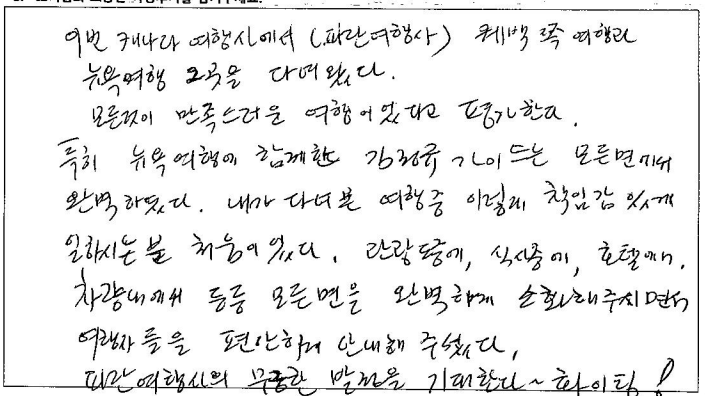 이번 캐나다 여행시에서 (파란여행사) 퀘백 쪽 여행과
뉴욕여행 2곳을 다녀왔다.
모든것이 만족스러운 여행이었다고 평가한다.
특히 뉴욕여행에 함께한 가이드는 모든면에서
완벽하였다. 내가 다녀본 여행중 이렇게 책임감 있게
일하시는 분 처음이었다. 관광도중에, 식사중에, 호텔에서,
차량내에서 등등 모든면을 완벽하게 해주시면서
여행자들을 편안하게 안내해 주셨다,
파란여행사의 무궁한 발전을 기대한다~ 화이팅!